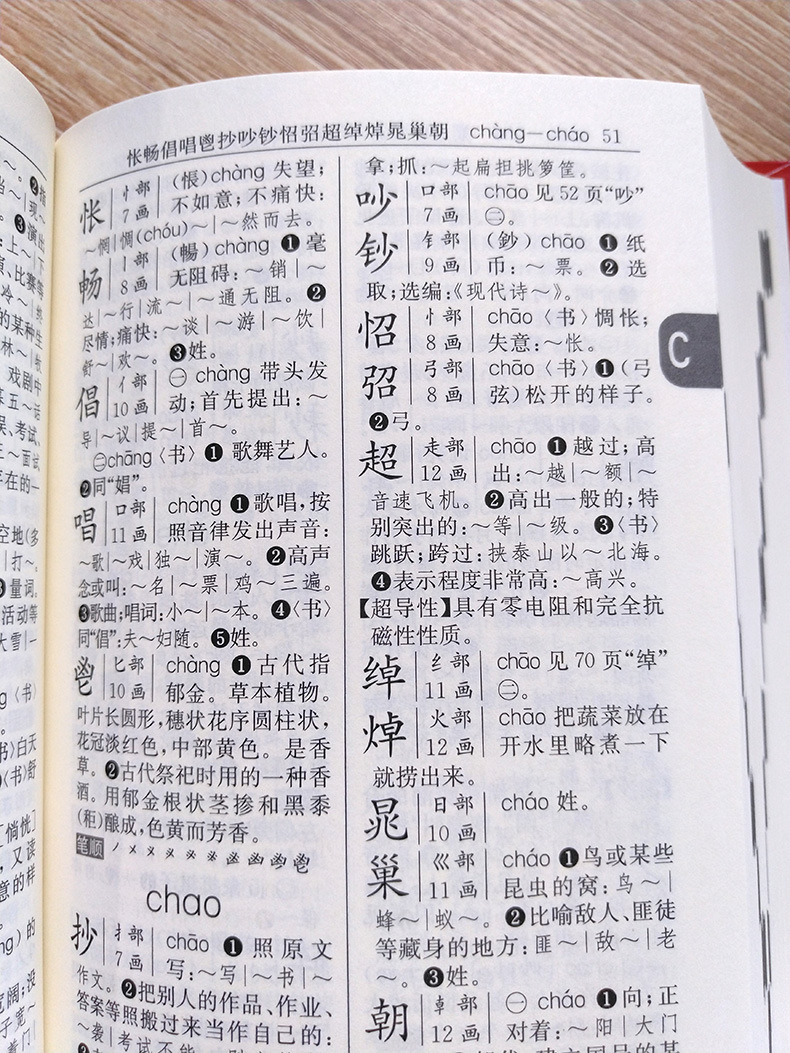 怅畅倡唱鬯抄吵钞怊弨超绰焯晁巢朝 chàng—cháo 51
怅 忄部 7画 (悵)chàng 失望;
不如意;不痛快:
～惘|惆(chóu)～|～然而去。
畅 丨部 8画 (暢)chàng ❶毫
无阻碍:～销|～
达|～行|流～|～通无阻。❷
尽情;痛快:～谈|～游|～饮|
舒～|欢～。❸姓。
倡 亻部 10画 ㊀ chàng 带头发
动;首先提出:～
导|～议|提～|首～。
㊁chāng〈书〉❶歌舞艺人。
❷同“娼”。
唱 口部 11画 chàng ❶歌唱,按
照音律发出声音:
～歌|～戏|独～|演～。❷高声
念或叫:～名|～票|鸡～三遍。
❸歌曲;唱词:小～|～本。❹〈书〉
同“倡”:夫～妇随。❺姓。
鬯 匕部 10画 chàng ❶古代指
郁金。草本植物。
叶片长圆形,穗状花序圆柱状,
花冠淡红色,中部黄色。是香
草。❷古代祭祀时用的一种香
酒。用郁金根状茎掺和黑黍
(秬)酿成,色黄而芳香。
笔顺
chao
抄 扌部 7画 chāo ❶照原文
写:～写|～书|～
作文。❷把别人的作品、作业、
答案等照搬过来当作自己的:
～袭|考试不能
拿;抓:～起扁担挑箩筐。
吵 口部 7画 chāo 见52页“吵”
㊁。
钞 钅部 9画 (鈔)chāo ❶纸
币:～票。❷选
取;选编:《现代诗～》。
怊 忄部 8画 chāo〈书〉惆怅;
失意:～怅。
弨 弓部 8画 chāo〈书〉❶(弓
弦)松开的样子。
❷弓。
超 走部 12画 chāo ❶越过;高
出:～越|～额|～
音速飞机。❷高出一般的;特
别突出的:～等|～级。❸〈书〉
跳跃;跨过:挟泰山以～北海。
❹表示程度非常高:～高兴。
【超导性】具有零电阻和完全抗
磁性性质。
绰 纟部 11画 chāo 见70页“绰”
㊁。
焯 火部 12画 chāo 把蔬菜放在
开水里略煮一下
就捞出来。
晁 日部 10画 cháo 姓。
巢 巛部 11画 cháo ❶鸟或某些
昆虫的窝:鸟～|
蜂～|蚁～。❷比喻敌人、匪徒
等藏身的地方:匪～|敌～|老
～。❸姓。
朝 龺部 12画 ㊀ cháo ❶向;正
对着:～阳|大门
C